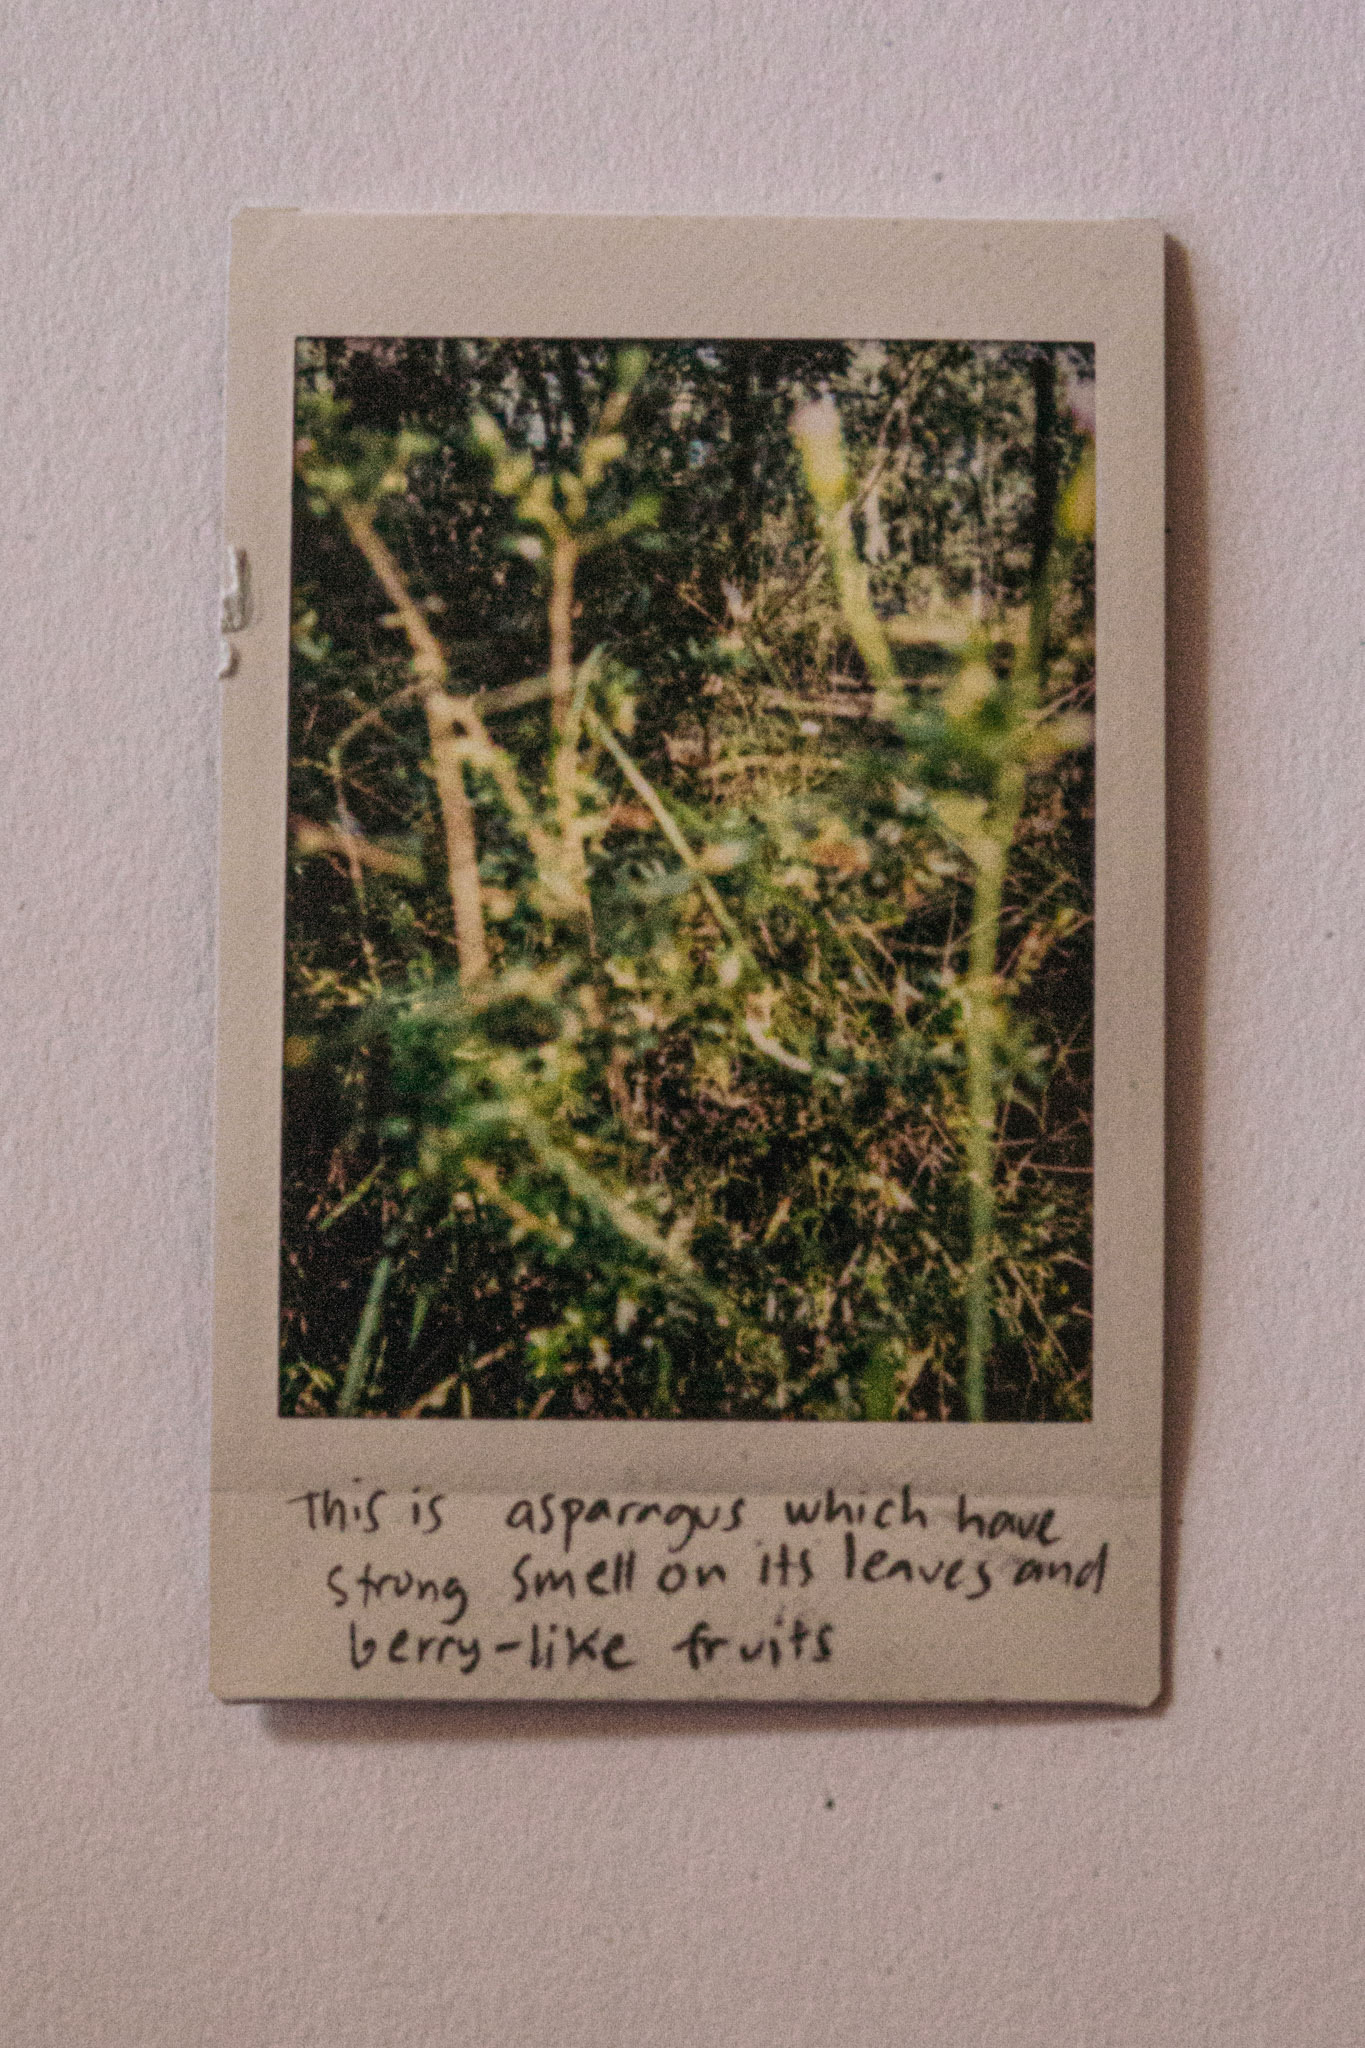 This is asparagus which have
strong smell on its leaves and
berry-like fruits